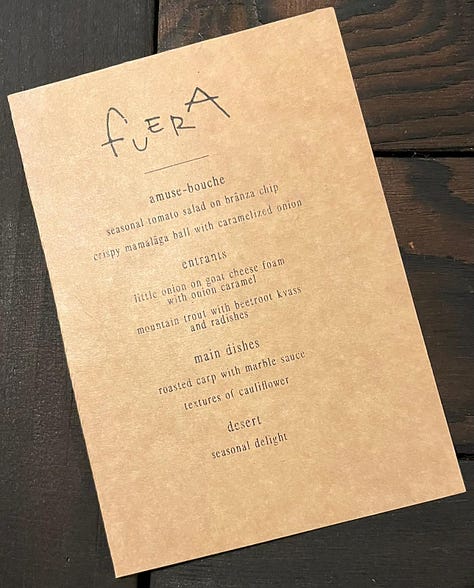 fUERA
amuse-bouche
seasonal tomato salad on brânza chip
crispy mămăliga ball with caramelized onion
entrants
little onion on goat cheese foam
with onion caramel
mountain trout with beetroot kvass
and radishes
main dishes
roasted carp with marble sauce
textures of cauliflower
desert
seasonal delight